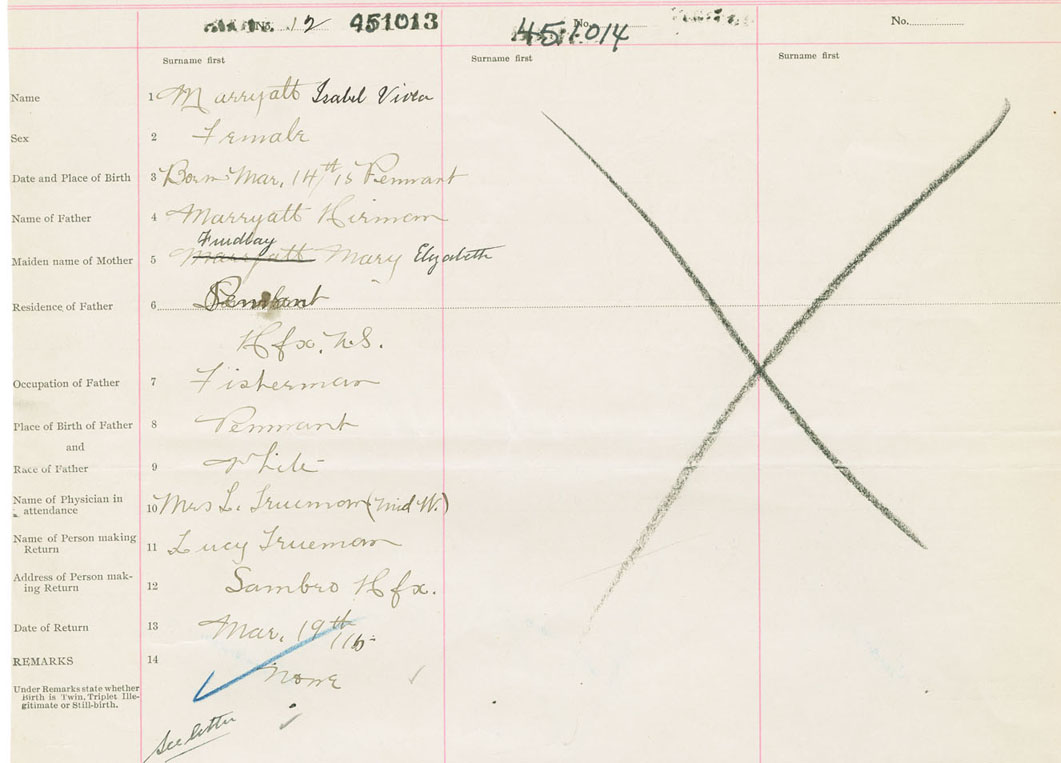 No. 12 451013
No. 451014
No.
Surname first
Surname first
Surname first
Name 1 Marryatt Isabel Viola
Sex 2 Female
Date and Place of Birth 3 Born Mar. 14th 15 Pennant
Name of Father 4 Marryatt Hirman
Findlay
Maiden name of Mother 5 Marryatt Mary Elizabeth
Residence of Father 6 Pennant
Hfx. N.S.
Occupation of Father 7 Fisherman
Place of Birth of Father 8 Pennant
and
Race of Father 9 White
Name of Physician in
attendance 10 Mrs L. Trueman (Mid W.)
Name of Person making
Return 11 Lucy Trueman
Address of Person mak-
ing Return 12 Sambro Hfx.
Date of Return 13 Mar. 19th
REMARKS 14
None
Under Remarks state whether
Birth is Twin, Triplet Ille-
gitimate or Still-birth.
See letter